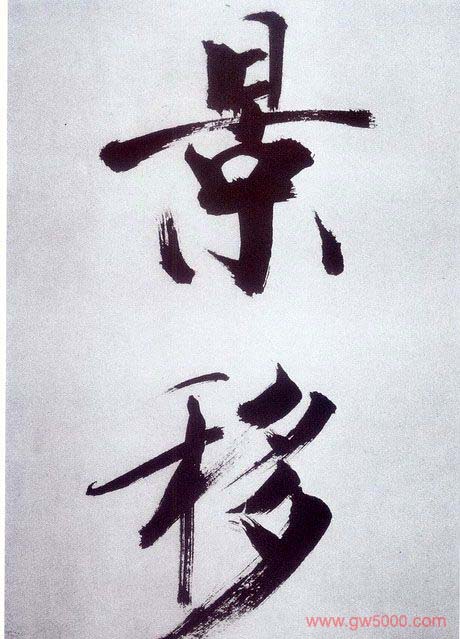 景移
www.gw5000.com